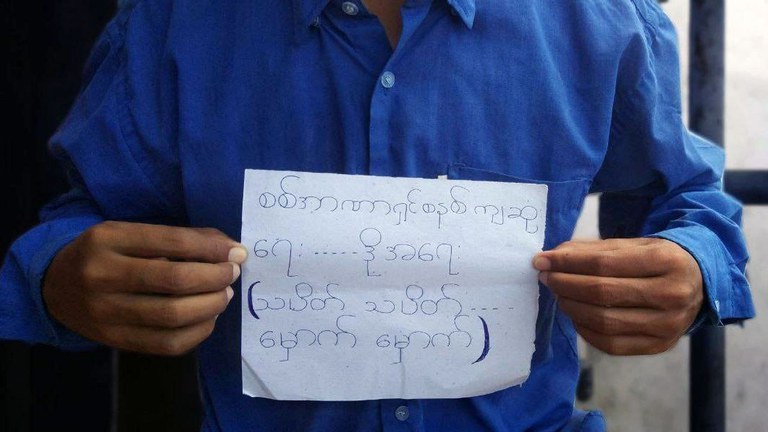 စစ်အာဏာရှင်စနစ် ကျဆုံ
ရေး ..... ဒို့အရေး
(သပိတ် သပိတ် ....
မှောက် မှောက်)